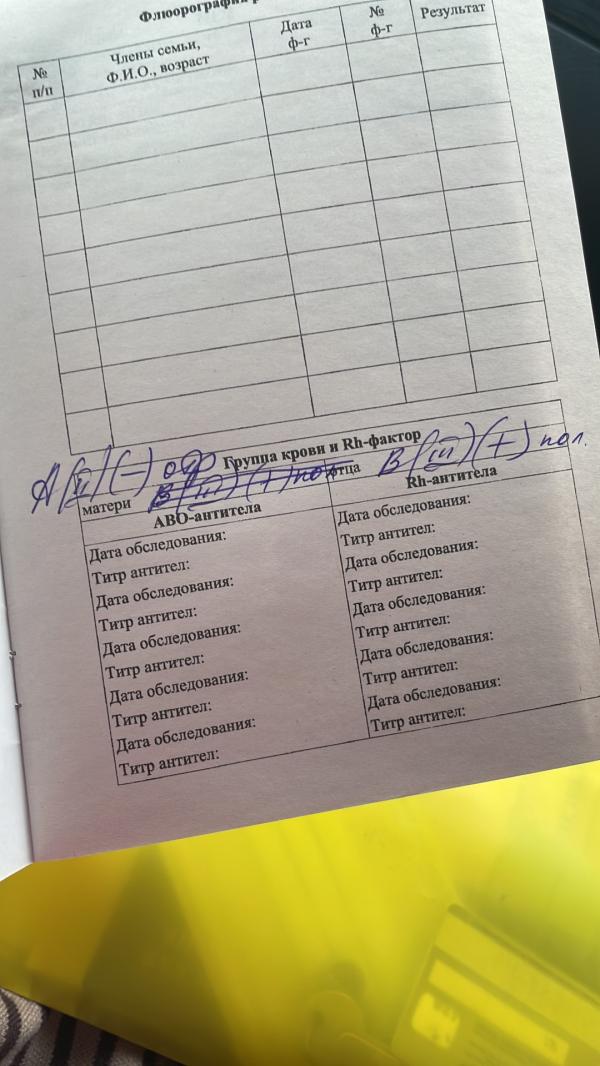 Флюорография
№
п/п
Члены семьи,
Ф.И.О., возраст
Дата
ф-г
№
ф-г
Результат
Группа крови и Rh-фактор
A(II)(-) отр
матери B(III)(+) пол
отца B(III)(+) пол.
АВО-антитела
Rh-антитела
Дата обследования:
Титр антител:
Дата обследования:
Титр антител:
Дата обследования:
Титр антител:
Дата обследования:
Титр антител:
Дата обследования:
Титр антител:
Дата обследования:
Титр антител:
Дата обследования:
Титр антител:
Дата обследования:
Титр антител:
Дата обследования:
Титр антител:
Дата обследования:
Титр антител: